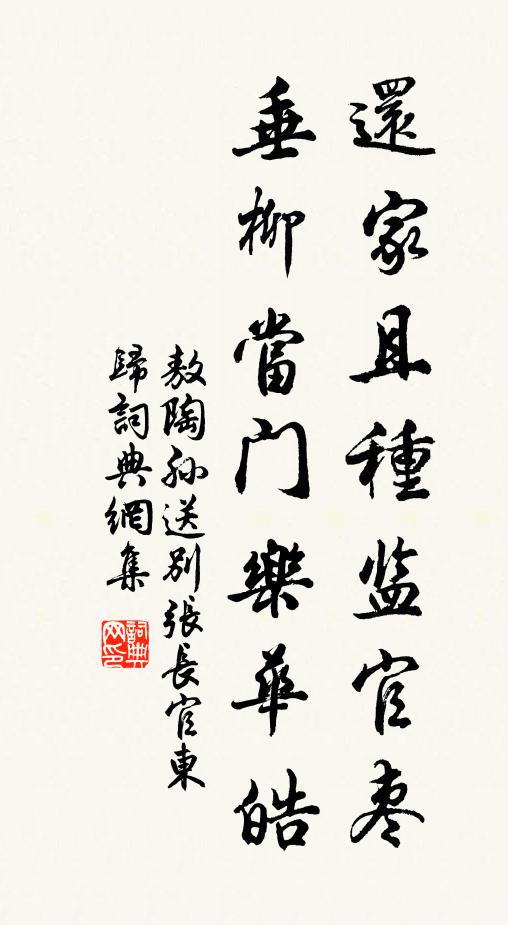 還家且種监官枣
垂柳當门樂華皓
敖陶孙送别張長官東
歸詞典網集
詞典网印